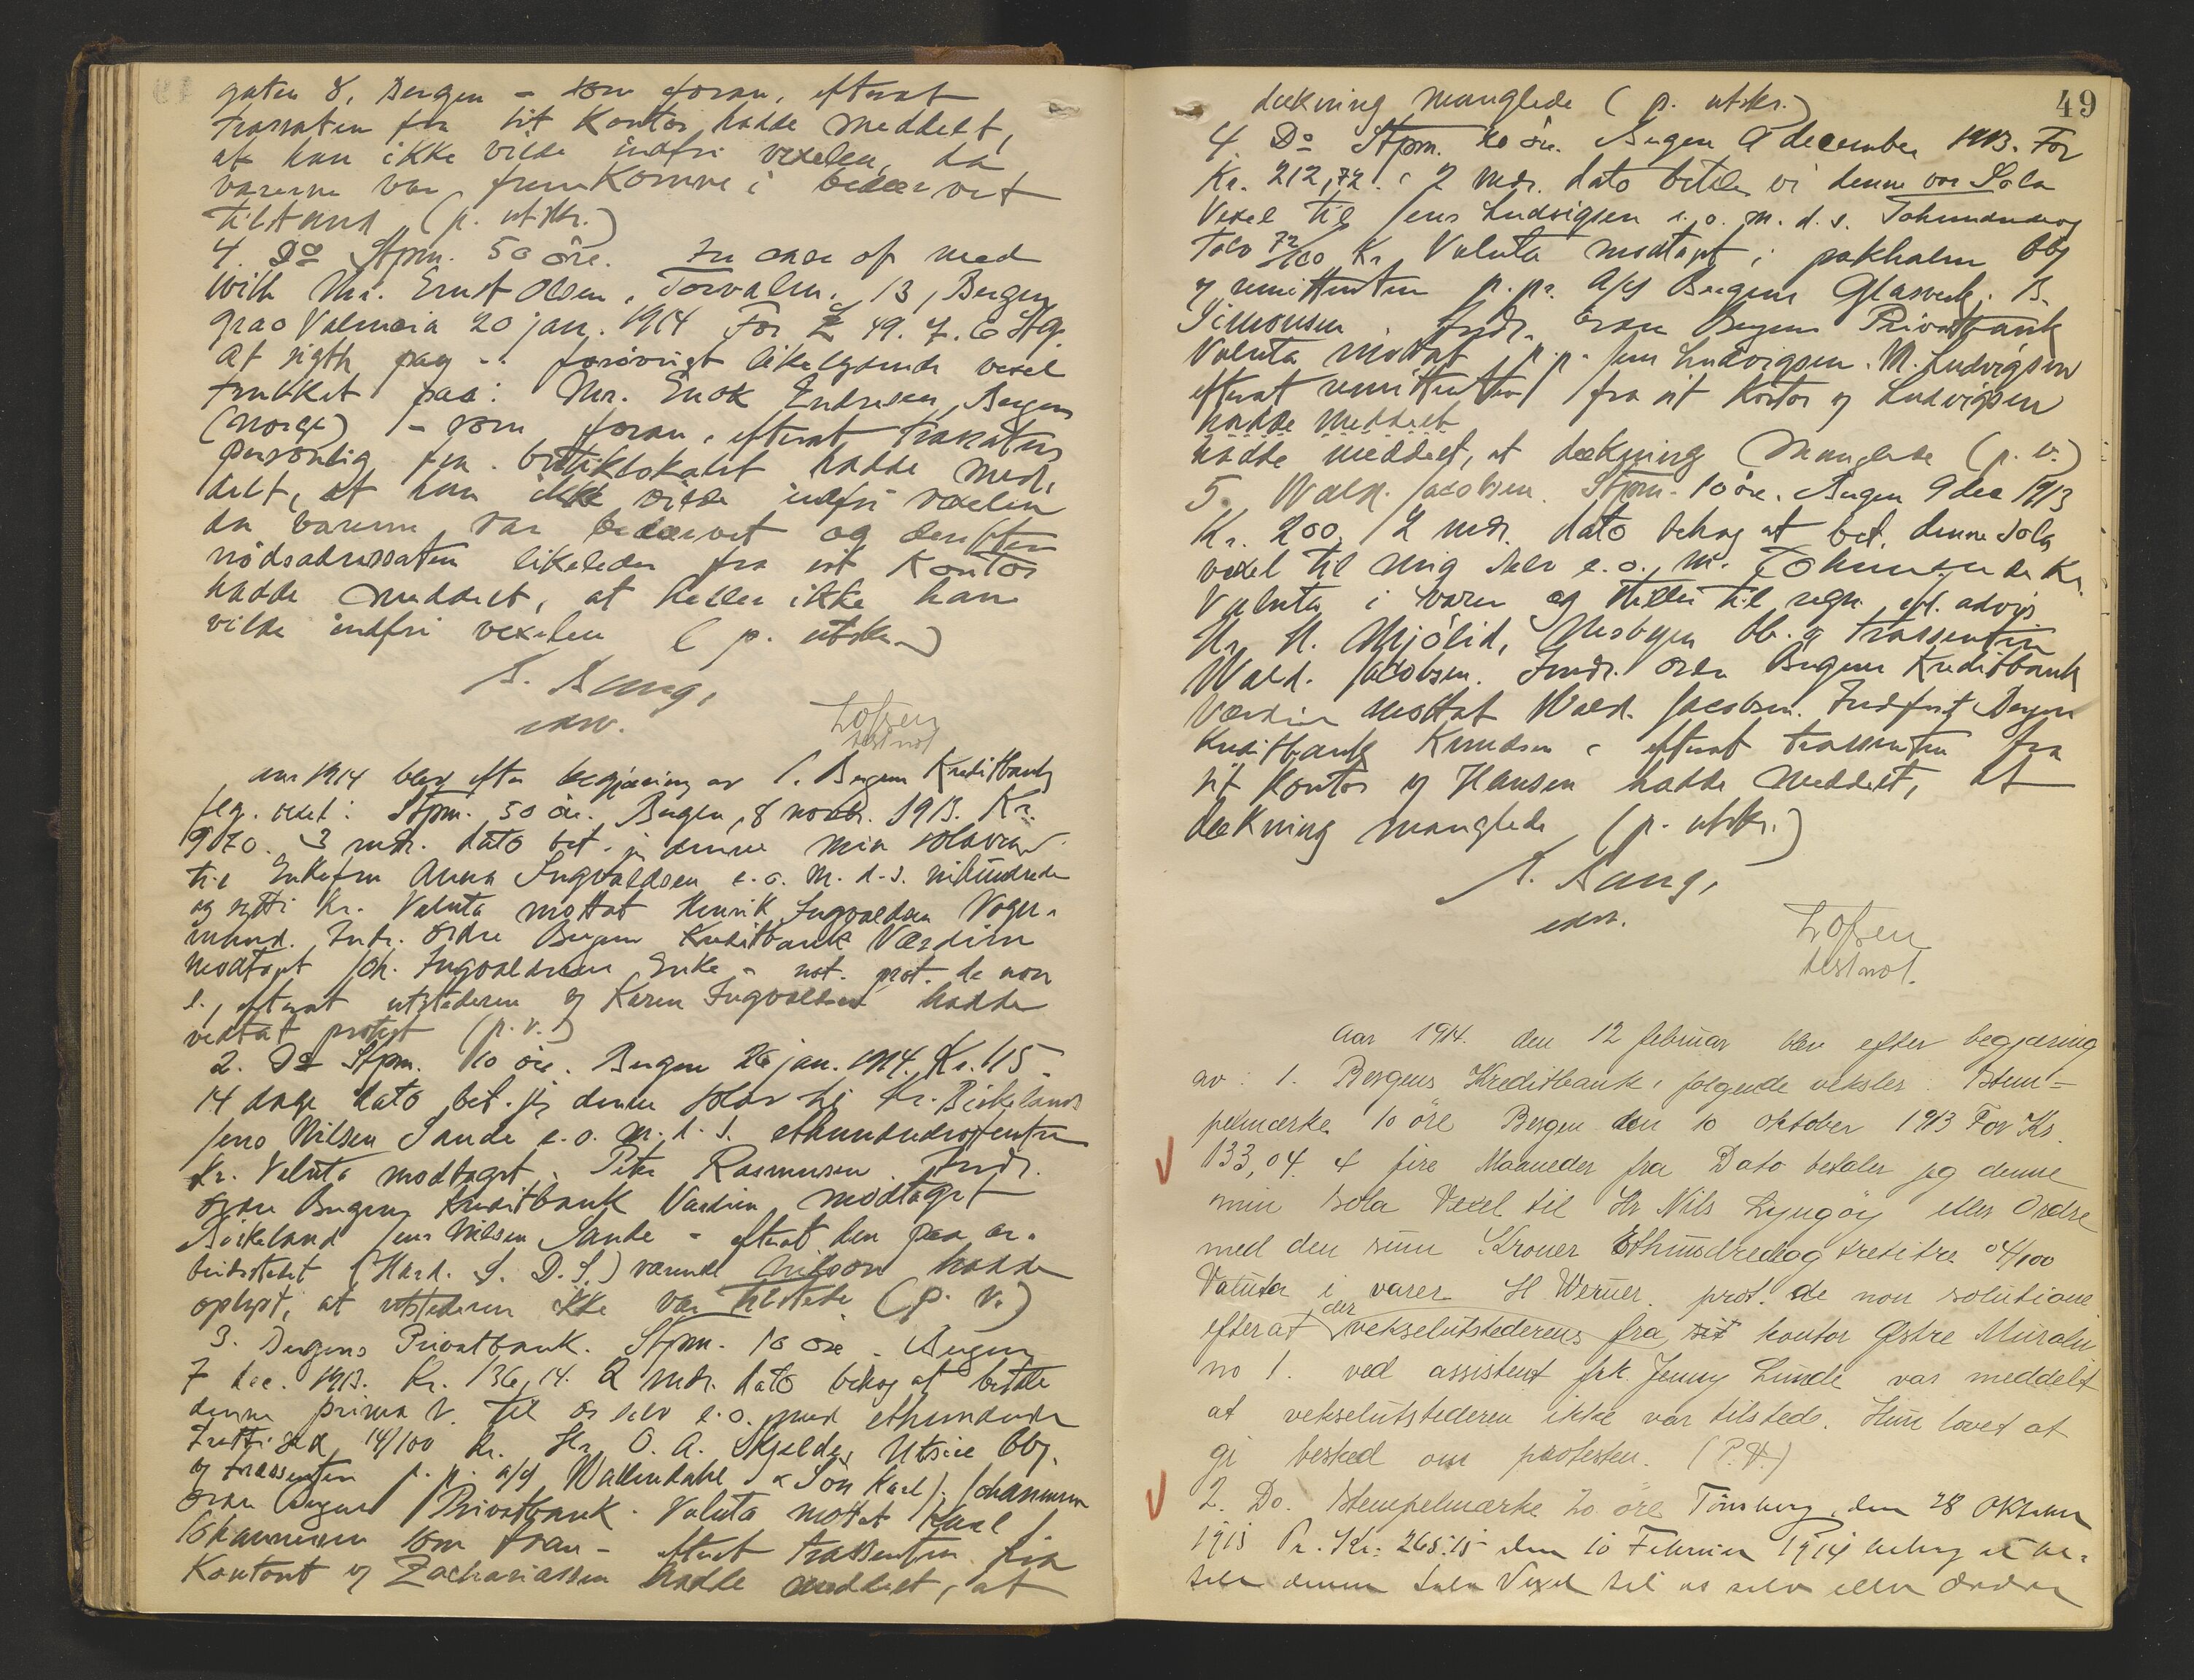 gaten 8, Bergen - som foran, efterat
trassaten fra sit Kontor hadde meddelt,
at han ikke vilde indfri vexelen, da
varerne var fremkomne i bedærvet
tilstand (p. utskr.)
4. Do Stpm. 50 öre. In case of need
with Mr. Ernst Olsen, Torvalm. 13, Bergen
Grao Valencia 20 jan. 1914 For £ 49. 7. 6 Stg.
At sigth pay - forövrigt likelydende vexel
trukket paa: Mr. Enok Endresen, Bergen
(Norge) - som foran, efterat trassaten
personlig fra butiklokalet hadde med-
delt, at han ikke vilde indfri vexelen
da varerne var bedærvet og derefter
nödsadressaten likeledes fra sit Kontor
hadde meddelt, at heller ikke han
vilde indfri vexelen (p. utskr.)
A. Bang,
edsv.
Lofsen
test not
Aar 1914 blev efter begjæring av 1. Bergens Kreditbank
flg. vexel: Stpm. 50 öre. Bergen, 8 novbr. 1913. Kr.
970. 3 mdr. dato bet. jeg denne min solavexel
til Enkefru Anna Ingvaldsen e. o. m. d. s. nihundrede
og sytti Kr. Valuta mottat Henrik Ingvaldsen
Indr. ordre Bergens Kreditbank Værdien
modtaget Joh. Ingvaldsens Enke - not. prot. de non
s., efterat utstederen v/ Karen Ingvaldsen hadde
vedtat protest (p. v.)
2. Do Stpm. 10 öre. Bergen 26 jan. 1914. Kr. 115.
14 dage dato bet. jeg denne solav. til Hr. Birkeland
Jens Nilsen Sande e. o. m. d. s. ethundredeogfemten
Kr. Valuta modtaget. Peter Rasmussen. Indr.
ordre Bergens Kreditbank Værdien modtaget
Birkeland Jens Nilsen Sande - efterat den paa ar-
beidsstedet (Hard. S. D. S.) værende Nilsson hadde
oplyst, at utstederen ikke var tilstede (p. v.)
3. Bergens Privatbank. Stpm. 10 öre. Bergen
7 dec. 1913. Kr. 136,14. 2 mdr. dato behag at betale
denne prima v. til os selv e. o. med ethundrede
trettisex 14/100 Kr. Hr. O. A. Skjelde, Utsire bbg.
og trassenten p. p. a/s Wallendahl & Sön Karl J. Johannessen
ordre Bergens Privatbank. Valuta mottat Karl J.
Johannessen som foran - efterat trassenten fra
Kontoret v/ Zachariassen hadde meddelt, at
49
dækning manglede (p. utskr.)
4. Do Stpm. 20 öre. Bergen 9 december 1913. For
Kr. 212,72. 2 mdr. dato betaler vi denne vor Sola
Vexel til Jens Ludvigsen e. o. m. d. s. Tohundredeog
Tolv 72/100 Kr. Valuta modtaget i pakhalm bbg
og remittenten p. pr. a/s Bergens Glasverk. B.
Simonsen. Indr. ordre Bergens Privatbank
Valuta mottat p. p. Jens Ludvigsen. M. Ludvigsen
efterat remittenten fra sit kontor v/ Ludvigsen
hadde meddelt
hadde meddelt, at dækning manglede (p. v.)
5. Wald. Jacobsen. Stpm. 10 öre. Bergen 9 dec 1913
Kr. 200. 2 mdr. dato behag at bet. denne sola
vexel til mig selv e. o. m. Tohundrede Kr.
Valuta i varer og stilles til regn. efl. advis
Hr. H. Mjölid, Nesbyen bb. og trassenten
Wald. Jacobsen. Indr. ordre Bergens Kreditbank
Værdien mottat Wald. Jacobsen. Indfrit Bergens
Kreditbank Knudsen - efterat trassenten fra
sit Kontor v/ Hansen hadde meddelt, at
dækning manglede (p. utskr.)
A. Bang,
edsv.
Lofsen
test not.
Aar 1914 den 12 februar blev efter begjæring
av: 1. Bergens Kreditbank, følgende veksler. Stem-
pelmerke 10 öre Bergen den 10 oktober 1913 For Kr.
133,04. 4 fire Maaneder fra Dato betaler jeg denne
min Sola Vexel til Hr Nils Lyngöy eller Ordre
med den sum Kroner Ethundredeog tretitre 04/100
Valuta i varer H Werner. prot. de non solutione
efterat der vekselutstederens fra sit kontor Østre Muralm
no 1. ved assistent frk. Jenny Lunde var meddelt
at vekselutstederen ikke var tilstede. Hun lovet at
gi besked om protesten. (P.V.)
2. Do. Stempelmerke 20 öre Tönsberg, den 28 Oktober
1913 Pr. Kr: 265.15 den 10 Februar 1914 behag at be-
tale denne Sola Vexel til os selv eller Ordre